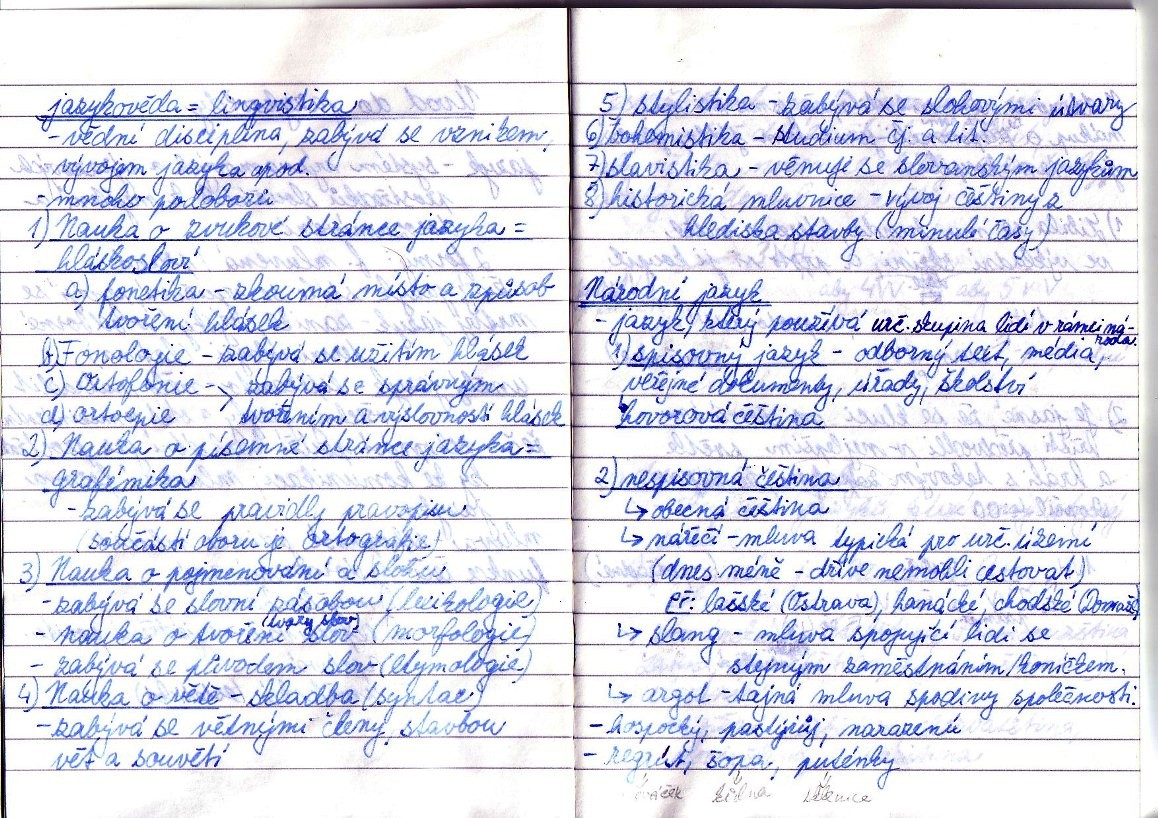 jazykověda = lingvistika
- vědní disciplína, zabývá se vznikem,
- vývojem jazyka apod.
- mnoho podoborů
1) Nauka o zvukové stránce jazyka =
hláskosloví
a) fonetika - zkoumá místo a způsob
tvoření hlásek
b) Fonologie - zabývá se užitím hlásek
c) Ortofonie -> zabývá se správným
d) ortoepie tvořením a výslovností hlásek
2) Nauka o písemné stránce jazyka =
grafémika
- zabývá se pravidly pravopisu
(součástí oboru je ortografie)
3) Nauka o pojmenování a slově
- zabývá se slovní zásobou (lexikologie)
tvary slov
- nauka o tvoření slov (morfologie)
- zabývá se původem slov (etymologie)
4) Nauka o větě - skladba (syntax)
- zabývá se větnými členy, stavbou
vět a souvětí
5) stylistika - zabývá se slohovými útvary
6) bohemistika - studium čj. a lit.
7) slavistika - věnuje se slovanským jazykům
8) historická mluvnice - vývoj češtiny z
hlediska stavby (minulé časy)
Národní jazyk
- jazyk, který používá urč. skupina lidí v rámci ná-
roda.
1) spisovný jazyk - odborný text, média,
veřejné dokumenty, úřady, školství
hovorová čeština
2) nespisovná čeština
↳ obecná čeština
↳ nářečí - mluva typická pro urč. území
(dnes méně - dříve nemohli cestovat)
Př: lašské (Ostrava), hanácké, chodské (Domažl)
↳ slang - mluva spojující lidi se
stejným zaměstnáním/koníčkem.
↳ argot - tajná mluva spodiny společnosti.
- hospocký, pastýřůj, naraženú
- regrút, šopa, puténky